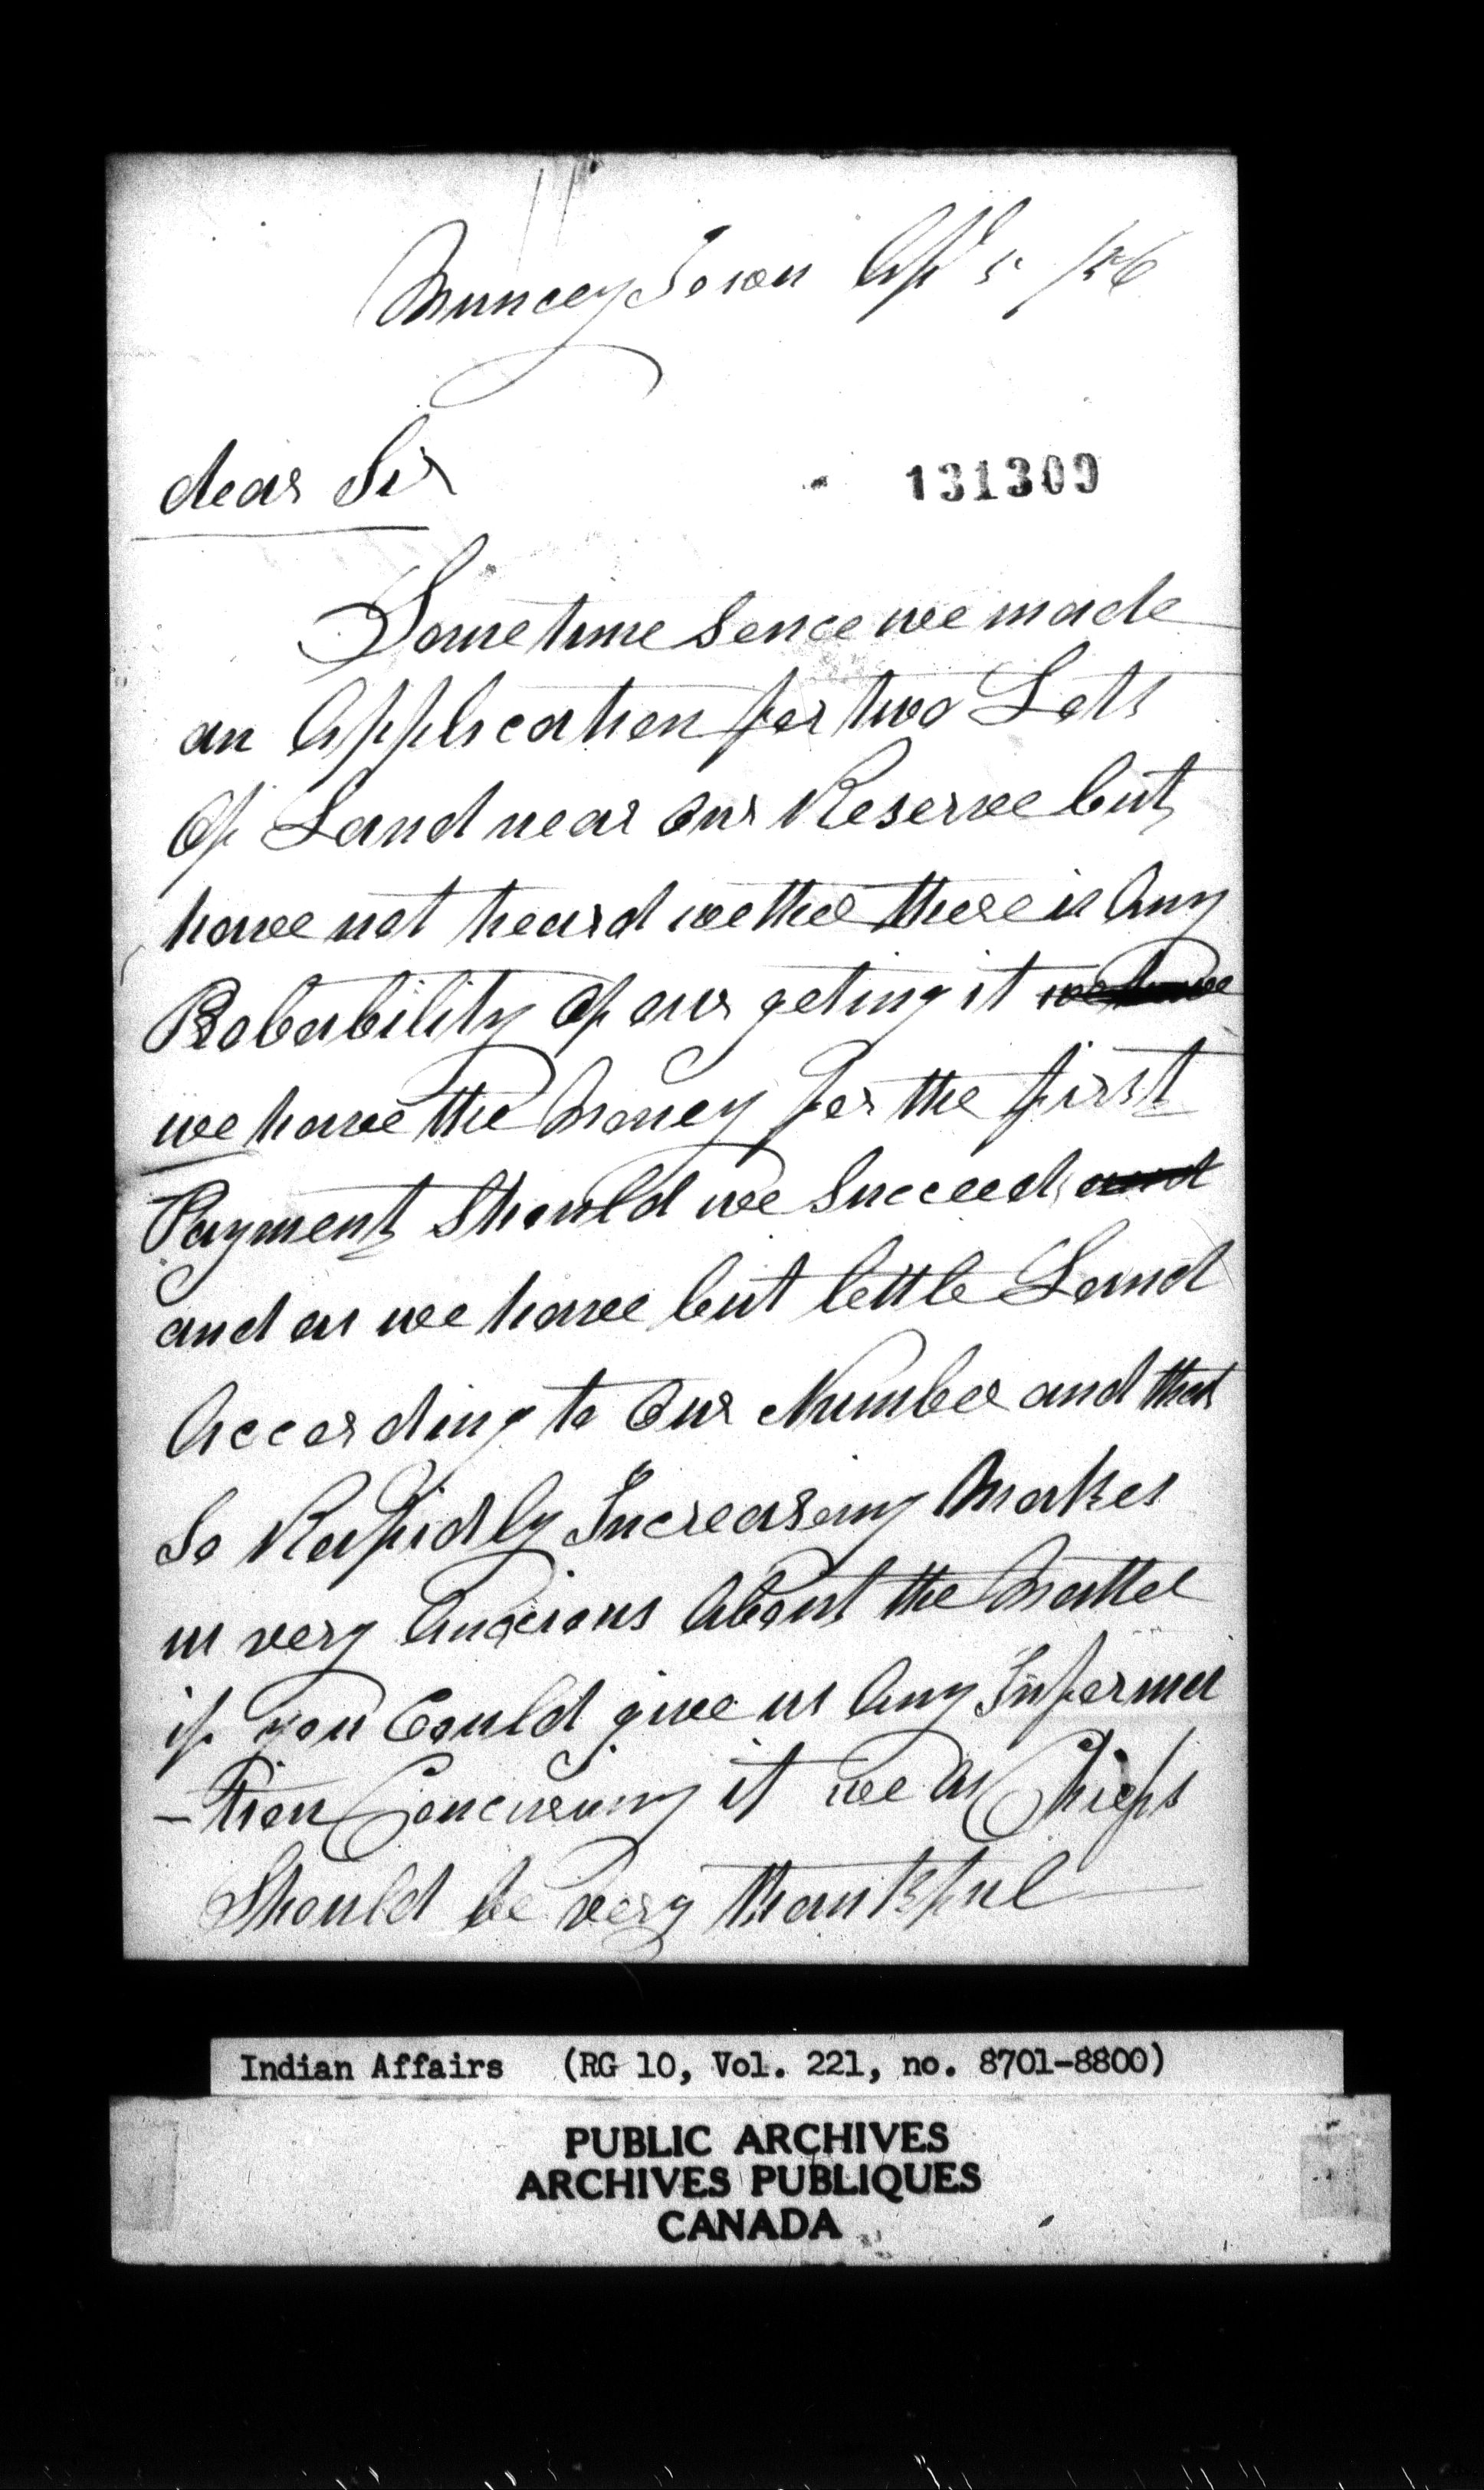 Muncey Town Apl 5 /56
dear Sir
131309
Sometime Sence we made
an Application for two Lots
Of Land near Our Reserve but
have not heard wether there is Any
Probability Of our geting it
we have the Money for the first
Payment Should we Succeed and
and as we have but little Land
According to Our Number and that
So Rapidly Increaseing Makes
us very Anxious About the Matter
if you Could give us Any Informa
-tion Concerning it we as Chiefs
Should be very thankful
Indian Affairs (RG 10, Vol. 221, no. 8701-8800)
PUBLIC ARCHIVES
ARCHIVES PUBLIQUES
CANADA